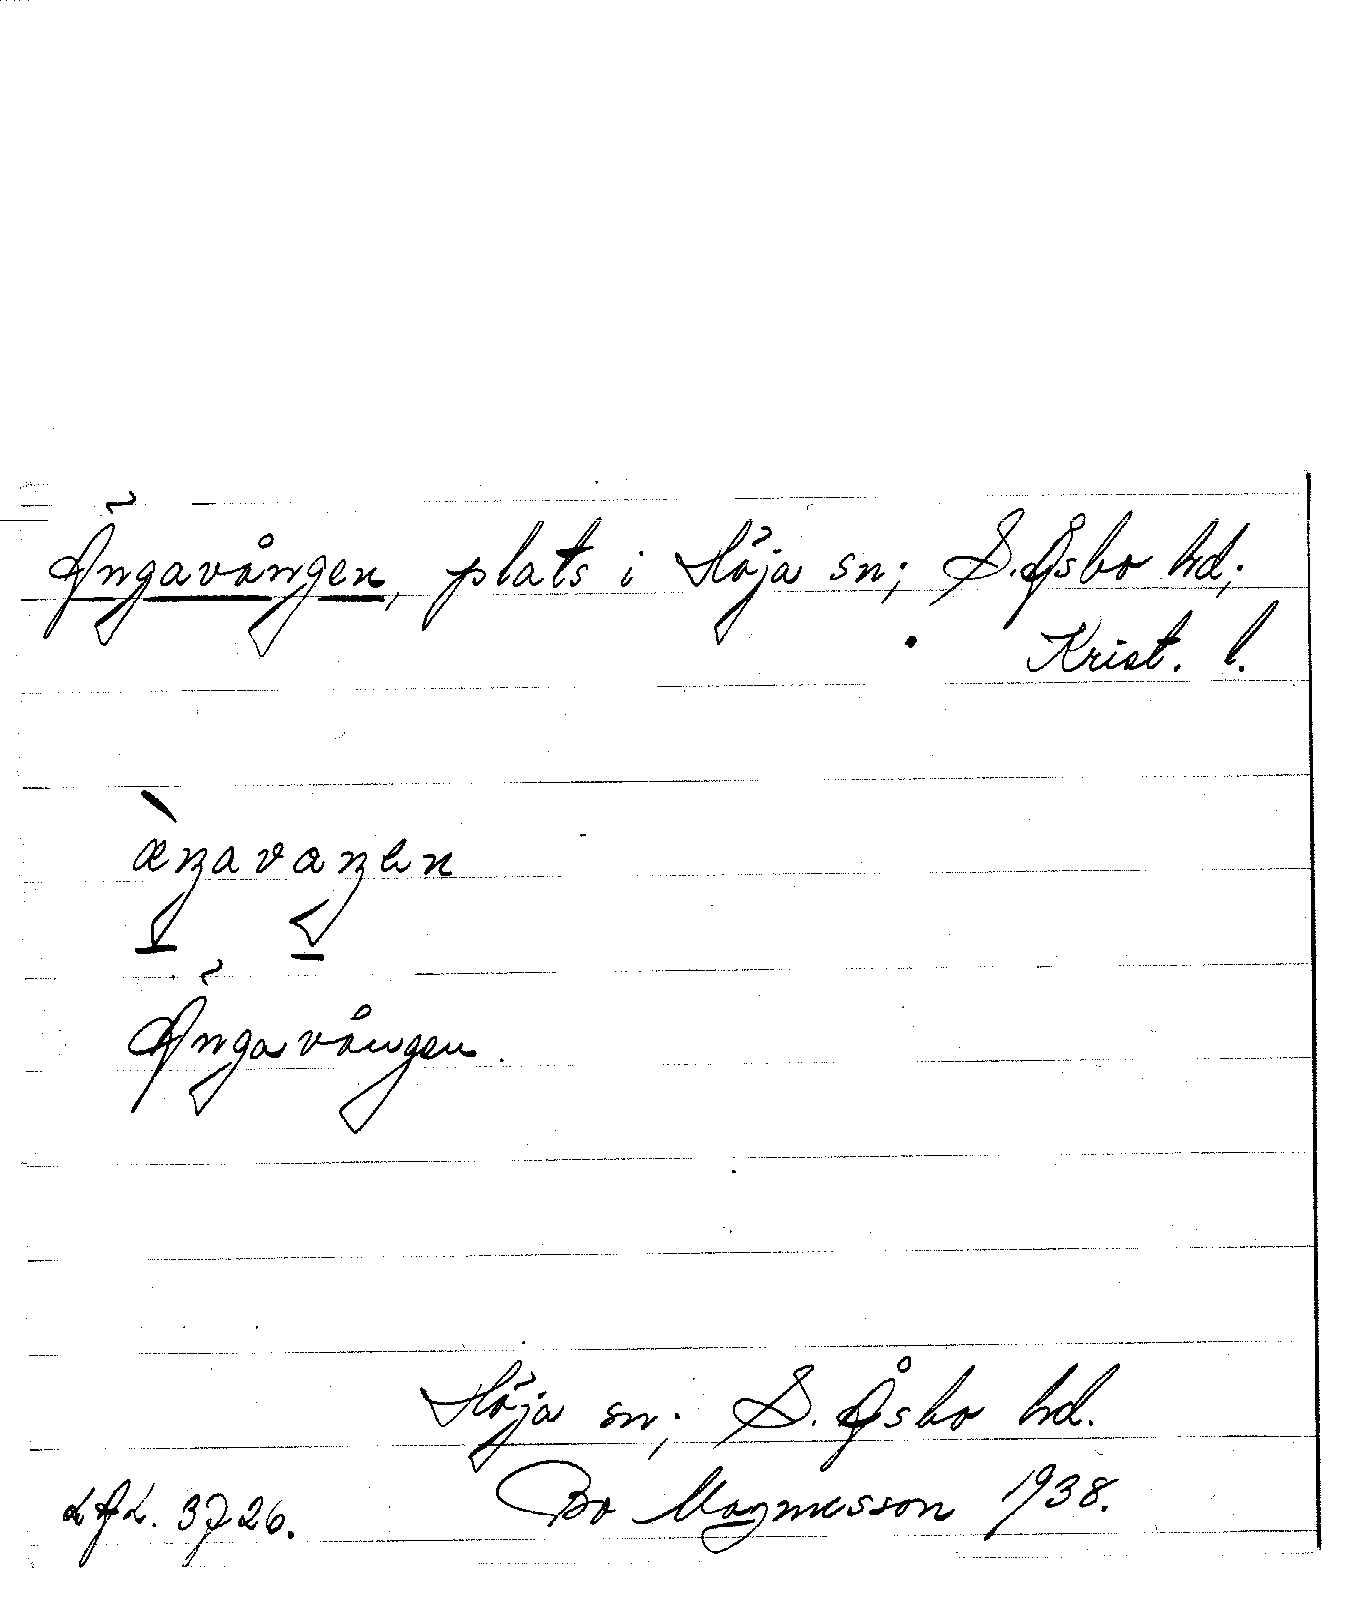 Ängavången, plats i Höja sn; S. Åsbo hd;
Krist. l.
æ̀ŋavaŋen
Ängavången.
Höja sn; S. Åsbo hd.
Bo Magnusson 1938.
LAL. 3726.